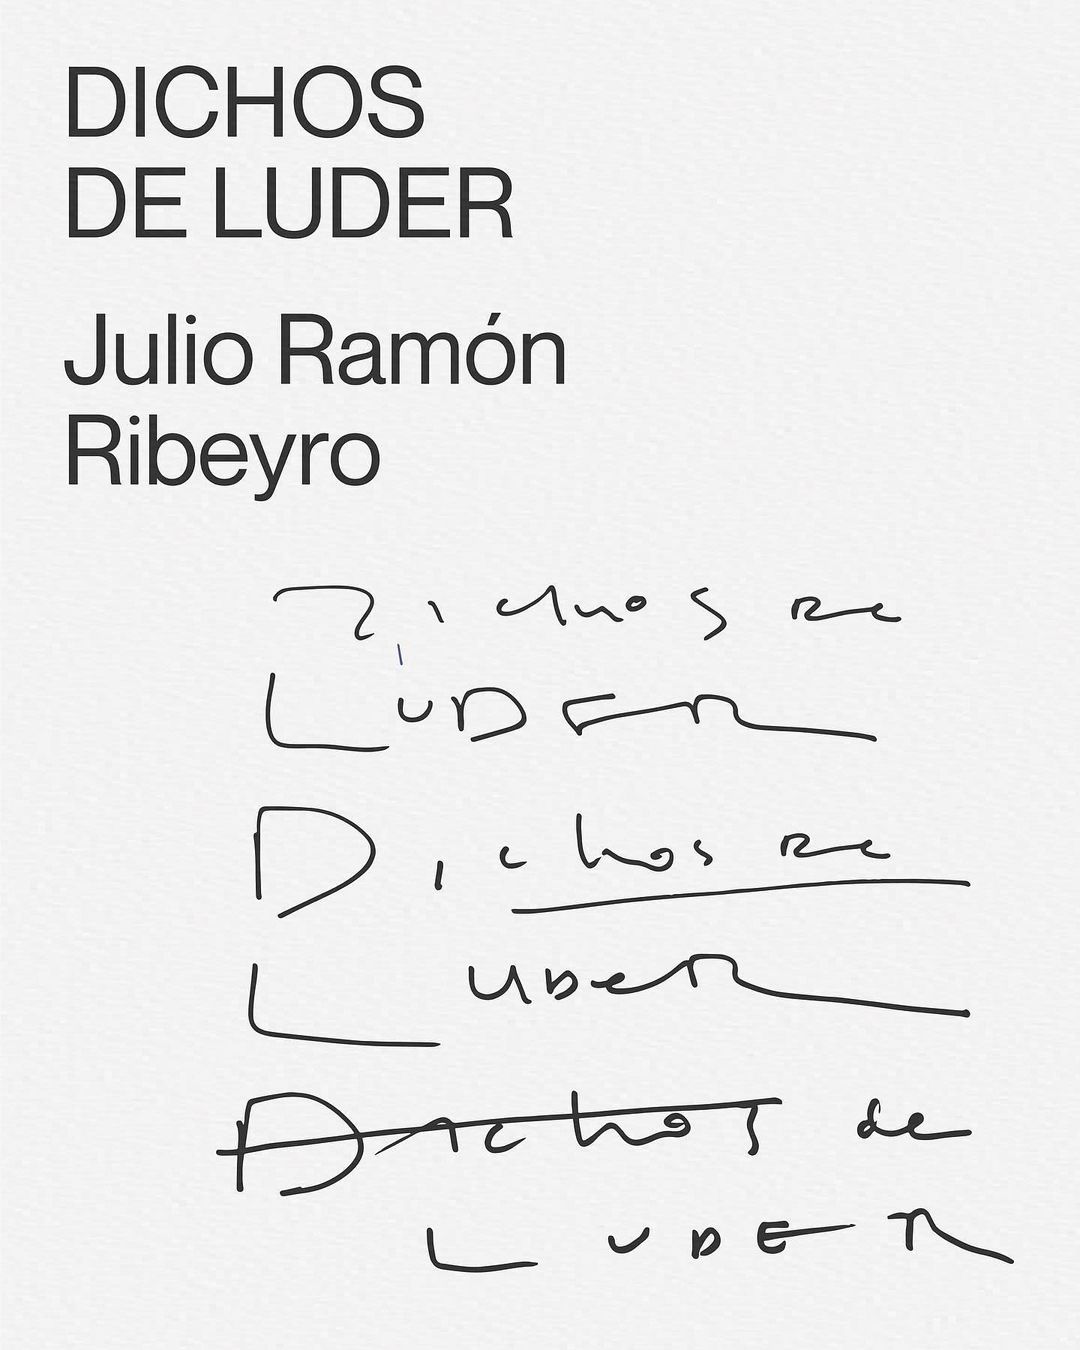 DICHOS
DE LUDER
Julio Ramón
Ribeyro
Dichos de
LUDER
Dichos de
LUDER
Dichos de
LUDER